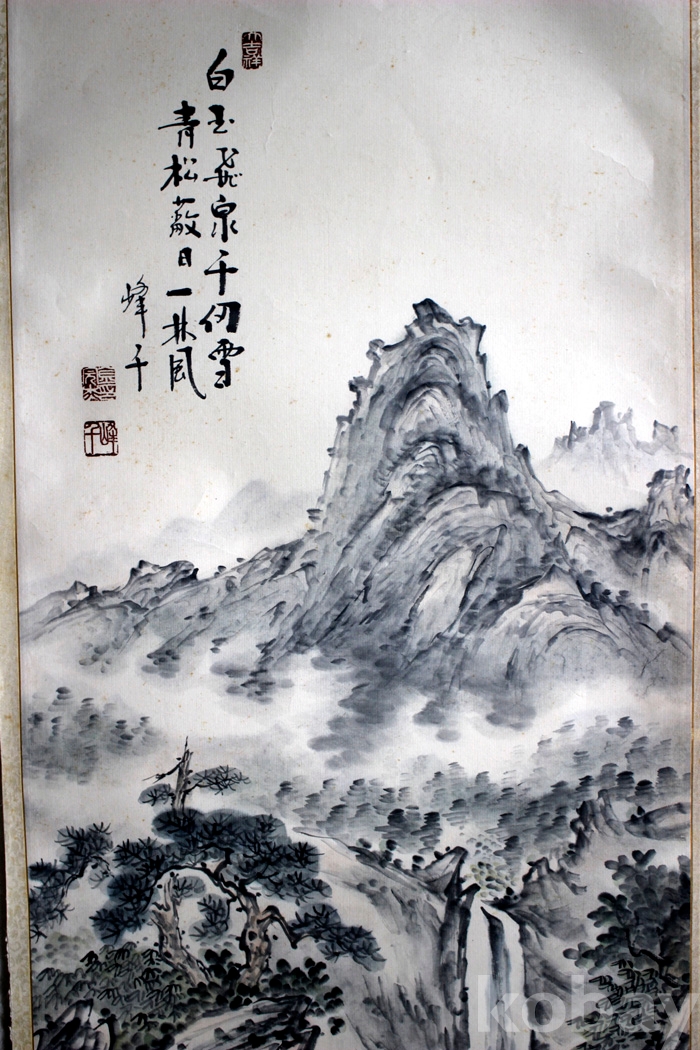 白玉飛泉千仞雪
青松蔽日一林風
峰千
吉祥
峰千
kobay